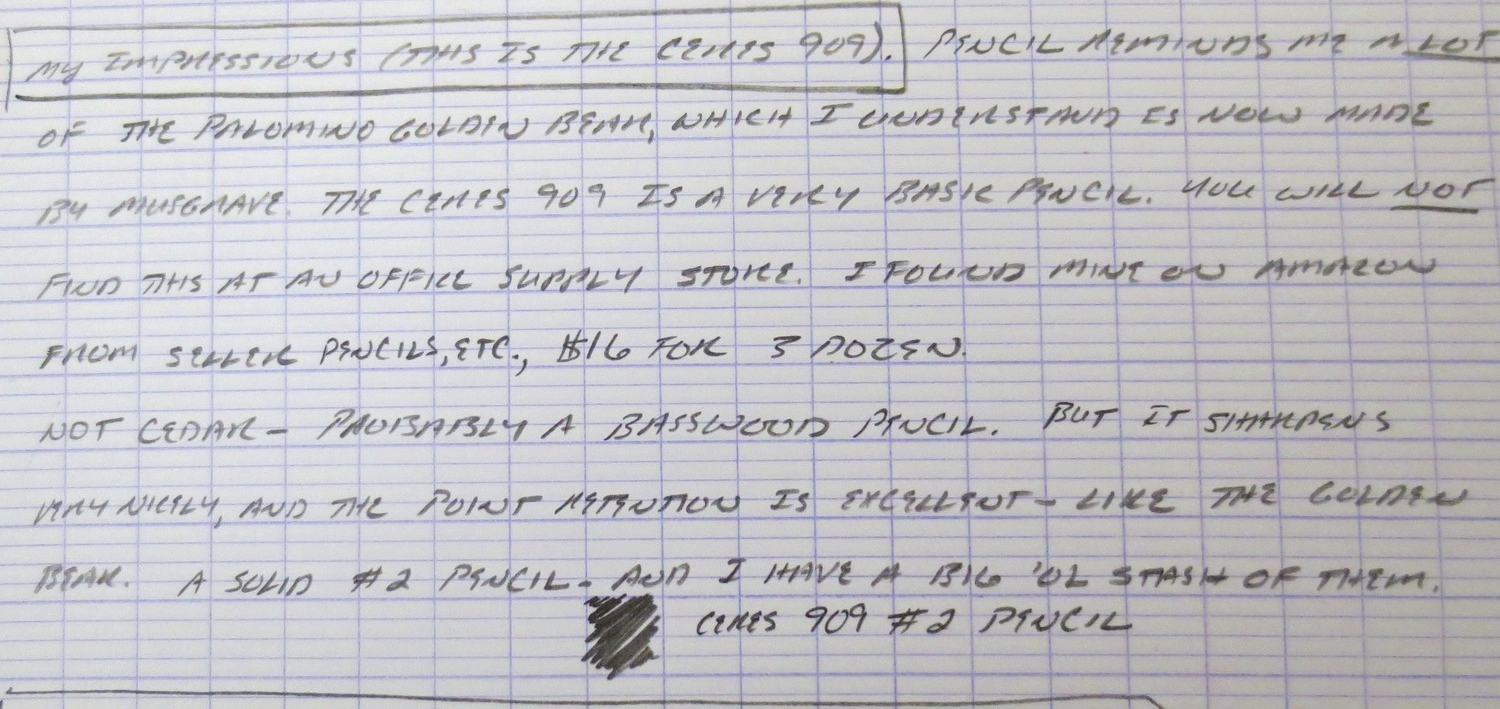 MY IMPRESSIONS (THIS IS THE CERES 909). PENCIL REMINDS ME A LOT
OF THE PALOMINO GOLDEN BEAR, WHICH I UNDERSTAND IS NOW MADE
BY MUSGRAVE. THE CERES 909 IS A VERY BASIC PENCIL. YOU WILL NOT
FIND THIS AT AN OFFICE SUPPLY STORE. I FOUND MINE ON AMAZON
FROM SELLER PENCILS, ETC., $16 FOR 3 DOZEN.
NOT CEDAR – PROBABLY A BASSWOOD PENCIL. BUT IT SHARPENS
VERY NICELY, AND THE POINT RETENTION IS EXCELLENT – LIKE THE GOLDEN
BEAR. A SOLID #2 PENCIL – AND I HAVE A BIG 'OL STASH OF THEM.
CERES 909 #2 PENCIL